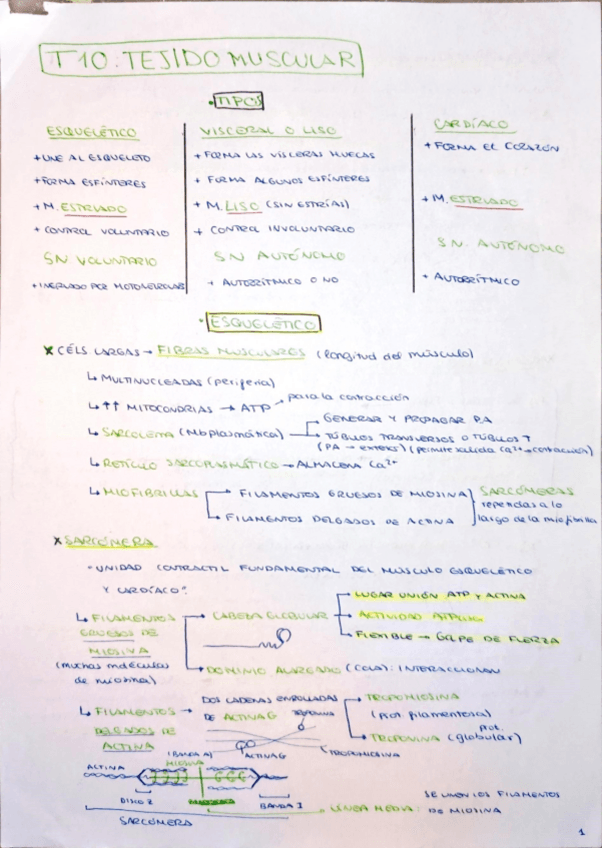 T10: TEJIDO MUSCULAR
• TIPOS
ESQUELÉTICO
+ UNE AL ESQUELETO
+ FORMA ESFÍNTERES
+ M. ESTRIADO
+ CONTROL VOLUNTARIO
SN VOLUNTARIO
+ INERVADO POR MOTONEURONAS
VISCERAL O LISO
+ FORMA LAS VÍSCERAS HUECAS
+ FORMA ALGUNOS ESFÍNTERES
+ M. LISO (SIN ESTRÍAS)
+ CONTROL INVOLUNTARIO
SN AUTÓNOMO
+ AUTORRÍTMICO O NO
CARDÍACO
+ FORMA EL CORAZÓN
+ M. ESTRIADO
SN. AUTÓNOMO
+ AUTORRÍTMICO
• ESQUELÉTICO
* CÉLS LARGAS → FIBRAS MUSCULARES (longitud del músculo)
↳ MULTINUCLEADAS (periferia)
↳ ↑↑ MITOCONDRIAS → ATP → para la contracción
↳ SARCOLEMA (Mb plasmática) → GENERAR Y PROPAGAR PA
→ TÚBULOS TRANSVERSOS O TÚBULOS T
(PA → exterior) (permite salida Ca²⁺ → contracción)
↳ RETÍCULO SARCOPLASMÁTICO → ALMACENA Ca²⁺
↳ MIOFIBRILLAS → FILAMENTOS GRUESOS DE MIOSINA
→ FILAMENTOS DELGADOS DE ACTINA
SARCÓMERAS
repetidas a lo
largo de la miofibrilla
* SARCÓMERA
"UNIDAD CONTRACTIL FUNDAMENTAL DEL MÚSCULO ESQUELÉTICO
Y CARDÍACO".
↳ FILAMENTOS GRUESOS DE MIOSINA
(muchas moléculas
de miosina)
→ CABEZA GLOBULAR
→ LUGAR UNIÓN ATP Y ACTINA
→ ACTIVIDAD ATPasa
→ FLEXIBLE → GOLPE DE FUERZA
→ DOMINIO ALARGADO (COLA): INTERACCIONAN
↳ FILAMENTOS DELGADOS DE ACTINA
→ DOS CADENAS ENROLLADAS
DE ACTINA G
TROPONINA
ACTINA G
TROPOMIOSINA
→ TROPOMIOSINA
(prot. filamentosa)
→ TROPONINA (prot. globular)
ACTINA
(BANDA A)
MIOSINA
DISCO Z
BANDA I
SARCÓMERA
LÍNEA MEDIA:
SE UNEN LOS FILAMENTOS
DE MIOSINA
1